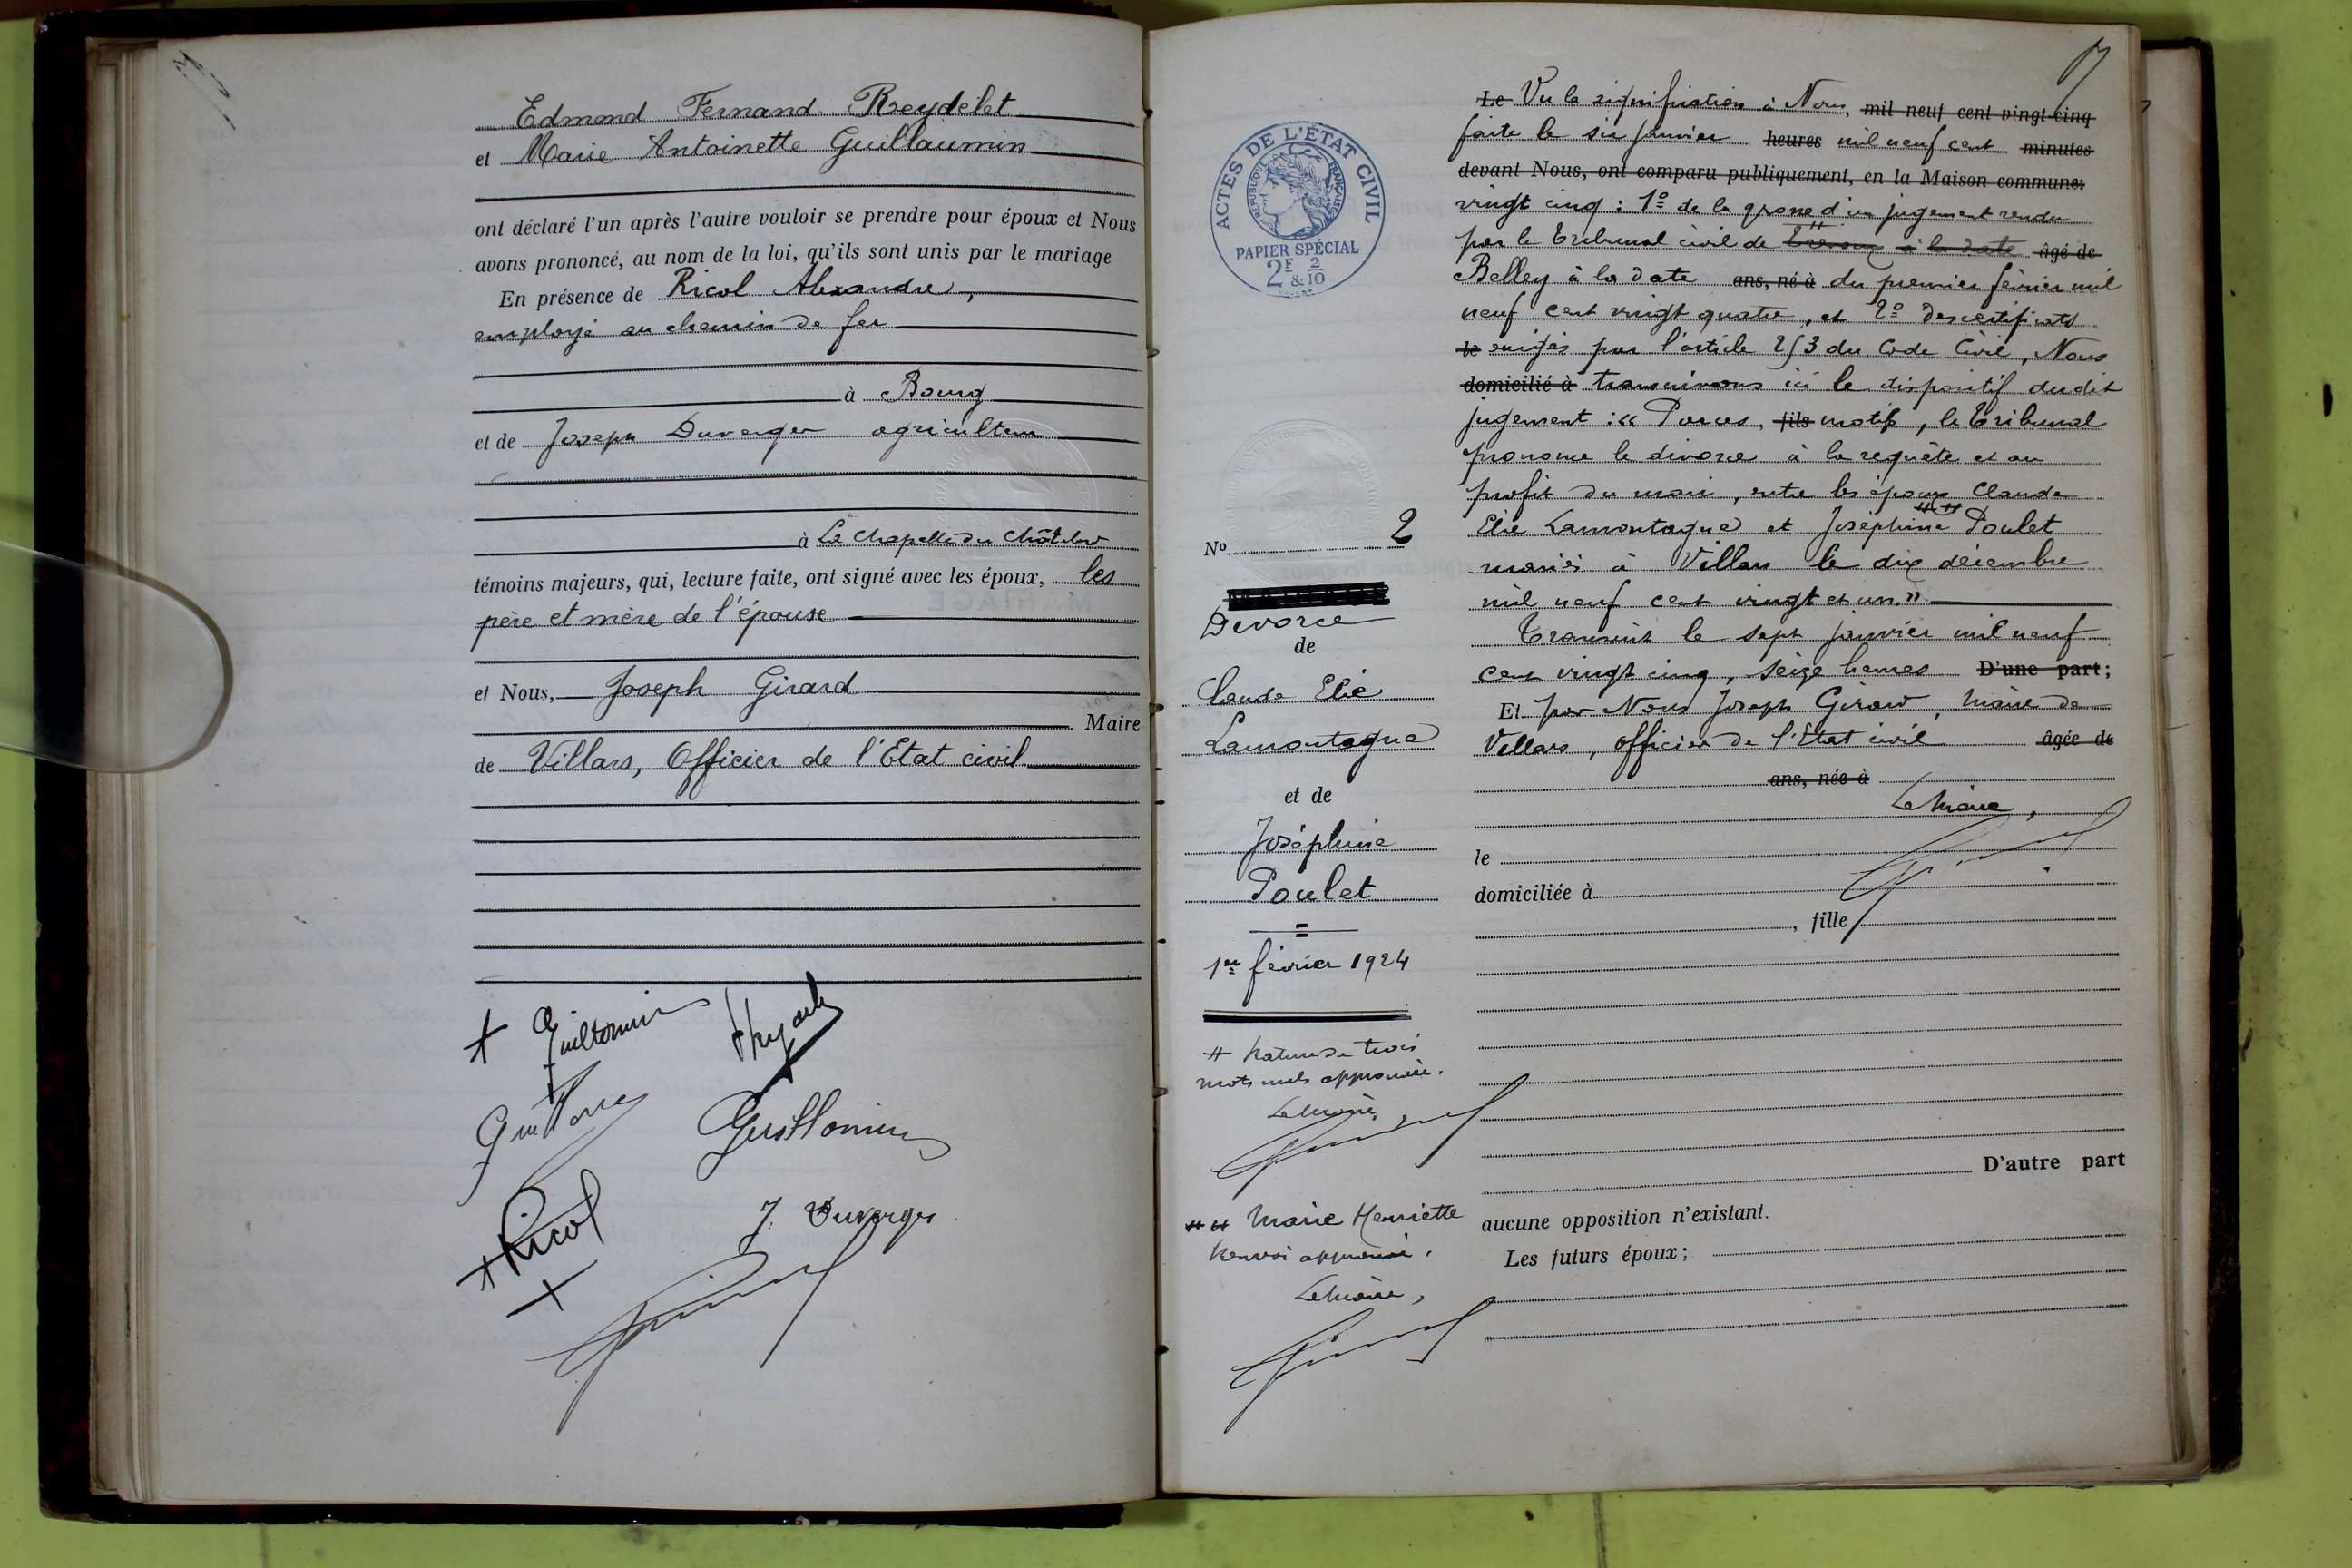 Edmond Fernand Reydelet
et Marie Antoinette Guillaumin
ont déclaré l'un après l'autre vouloir se prendre pour époux et Nous
avons prononcé, au nom de la loi, qu'ils sont unis par le mariage
En présence de Ricol Alexandre,
employé au chemin de fer
à Bourg
et de Joseph Duverger agriculteur
à La Chapelle du Châtelard
témoins majeurs, qui, lecture faite, ont signé avec les époux, les
père et mère de l'épouse
et Nous, Joseph Girard
Maire
de Villars, Officier de l'Etat civil
Ricol
J. Duverger
ACTES DE L'ÉTAT CIVIL
RÉPUBLIQUE FRANÇAISE
PAPIER SPÉCIAL
2F & 2/10
No 2
MARIAGE
Divorce
de
Claude Elie
Lamontagne
et de
Joséphine
Poulet
1er février 1924
# Rature de trois
mots nuls approuvée.
Le Maire,
## Marie Henriette
Renvoi approuvé.
Le Maire,
Le Vu la signification à Nous, mil neuf cent vingt-cinq
faite le six janvier heures mil neuf cent minutes
devant Nous, ont comparu publiquement, en la Maison commune:
vingt cinq : 1º de la grosse d'un jugement rendu
par le Tribunal civil de Trévoux à la date âgé de
Belley à la date ans, né à du premier février mil
neuf cent vingt quatre, et 2º des certificats
le exigés par l'article 253 du Code Civil, Nous
domicilié à transcrivons ici le dispositif dudit
jugement : « Par ces, fils motifs, le Tribunal
prononce le divorce à la requête et au
profit du mari, entre les époux Claude
Elie Lamontagne et Joséphine ## Poulet
mariés à Villars le dix décembre
mil neuf cent vingt et un. »
Transcrit le sept janvier mil neuf
cent vingt cinq, seize heures D'une part;
Et par Nous Joseph Girard, Maire de
Villars, officier de l'Etat civil âgée de
ans, née à
Le Maire,
le
domiciliée à
, fille
D'autre part
aucune opposition n'existant.
Les futurs époux;